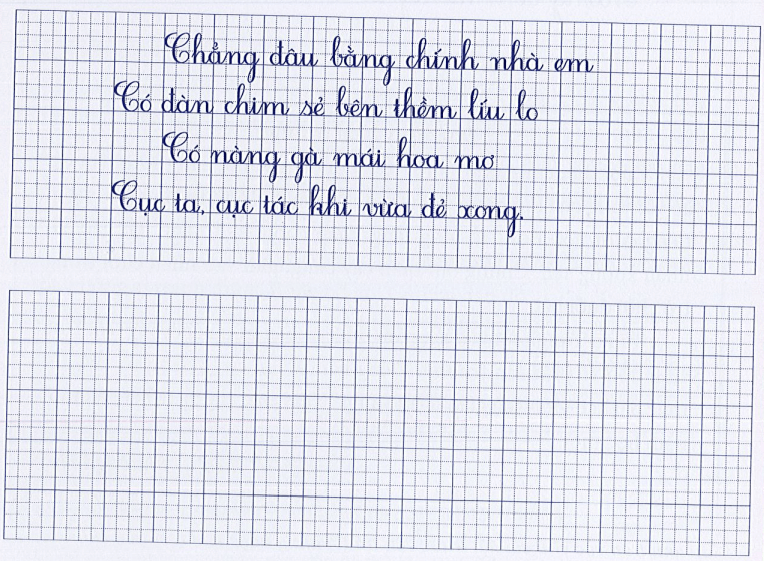 Chẳng đâu bằng chính nhà em
Có đàn chim sẻ bên thềm líu lo
Có nàng gà mái hoa mơ
Cục ta, cục tác khi vừa đẻ xong.